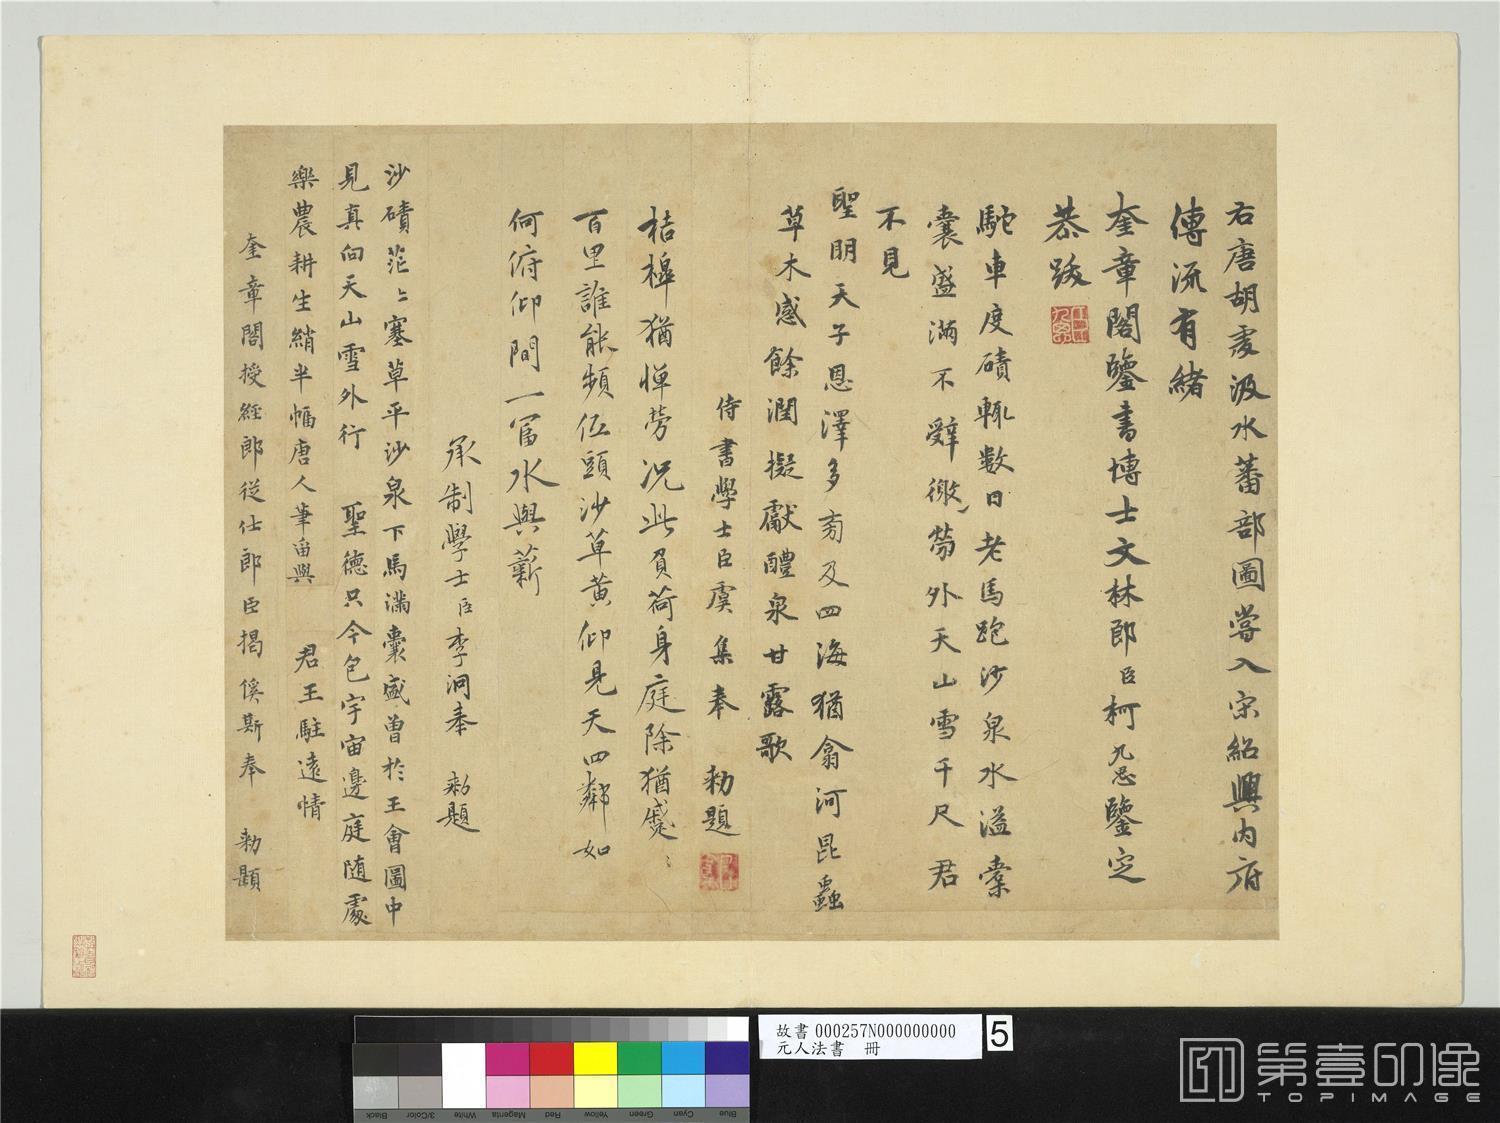 右唐胡虔汲水蕃部圖嘗入宋紹興內府
傳流有緒
奎章閣鑒書博士文林郎臣柯九思鑒定
恭跋
駝車度磧輒數日老馬跑沙泉水溢橐
囊盛滿不辭微勞外天山雪千尺君
不見
聖明天子恩澤多旁及四海猶翕河昆蟲
草木感餘潤擬獻醴泉甘露歌
侍書學士臣虞集奉 勑題
桔槔猶憚勞況此負荷身庭除猶蹙ミ
百里誰能頻伍頭沙草黄仰見天四鄰如
何俯仰間一冨水與薪
承制學士臣李泂奉 勑題
沙磧茫ミ塞草平沙泉下馬滿囊盛曽於王會圖中
見真向天山雪外行 聖德只今包宇宙邊庭随處
樂農耕生綃半幅唐人筆畱與 君王駐遠情
奎章閣授經郎從仕郎臣揭傒斯奉 勑題
故書 000257N000000000
元人法書 冊
5
Black
3/Color
White
Magenta
Red
Yellow
Green
Cyan
Blue
第壹印像
TOPIMAGE